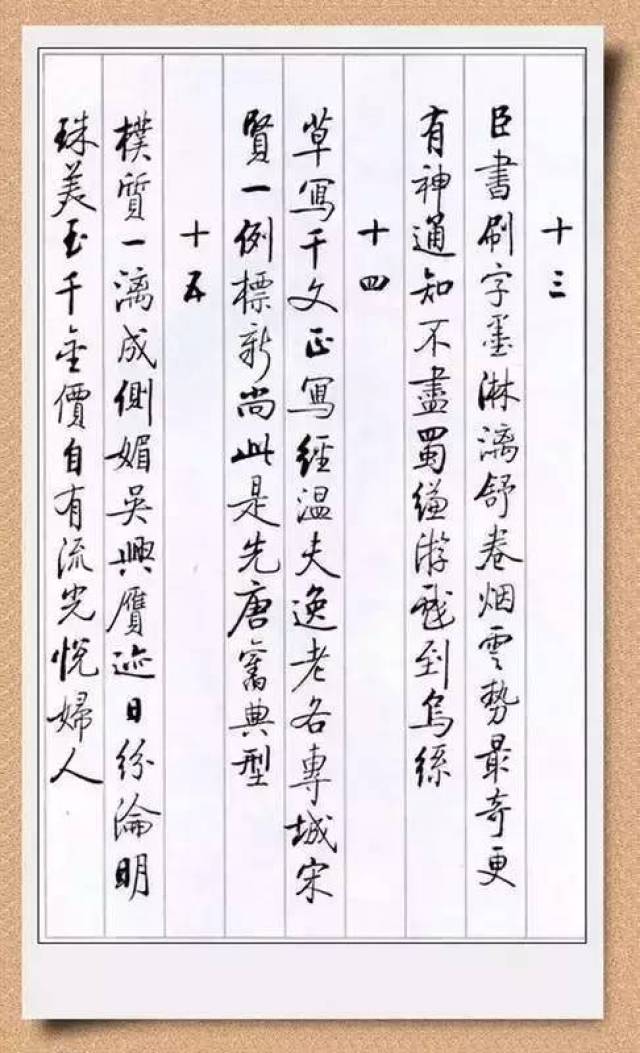 十三
臣書刷字墨淋漓舒卷烟雲勢最奇更
有神通知不盡蜀縑游戲到烏絲
十四
草寫千文正寫經温夫逸老各專城宋
賢一例標新尚此是先唐舊典型
十五
樸質一漓成側媚吳興贋迹日紛淪明
珠美玉千金價自有流光悅婦人